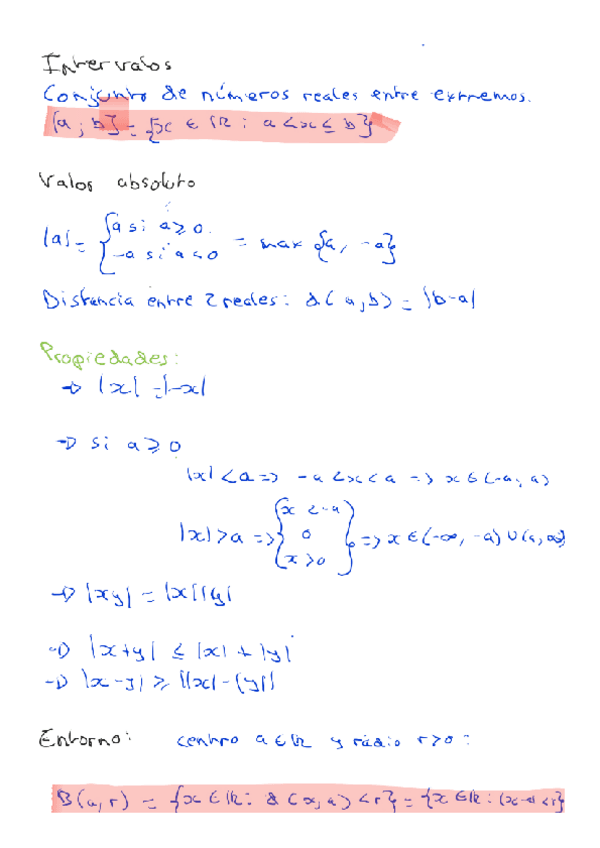 Intervalos
Conjunto de números reales entre extremos.
(a ; b] = {x ∈ IR : a < x ≤ b}
Valos absoluto
|a| = { a si a ≥ 0. -a si a < 0 = max {a, -a}
Distancia entre 2 reales: d(a,b) = |b-a|
Propiedades:
→ |x| = |-x|
→ si a ≥ 0
|x| < a => -a < x < a => x ∈ (-a, a)
|x| > a => { x < -a o x > o } => x ∈ (-∞, -a) ∪ (a, ∞)
→ |xy| = |x||y|
→ |x+y| ≤ |x| + |y|
→ |x-y| ≥ ||x| - |y||
Entorno: centro a ∈ IR y rádio r > 0 :
B(a,r) = {x ∈ IR : d(x,a) < r} = {x ∈ IR : |x-a| < r}